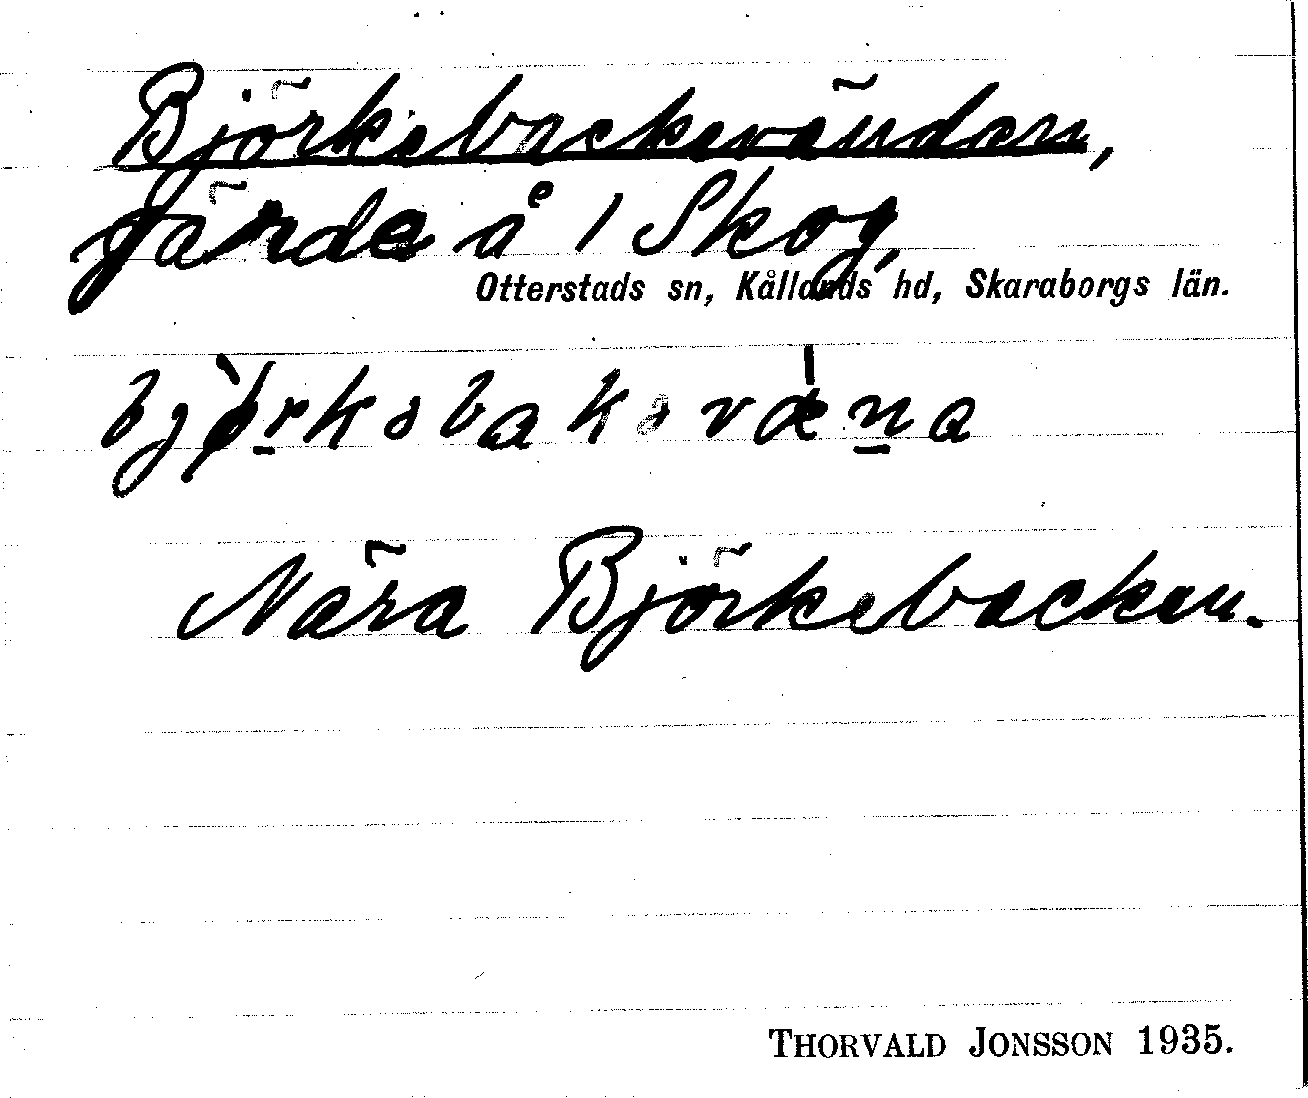 Björkebackevänden,
gärde å 1/1 Skog,
Otterstads sn, Kållands hd, Skaraborgs län.
bjørkəbakəvæna
Nära Björkebacken.
THORVALD JONSSON 1935.